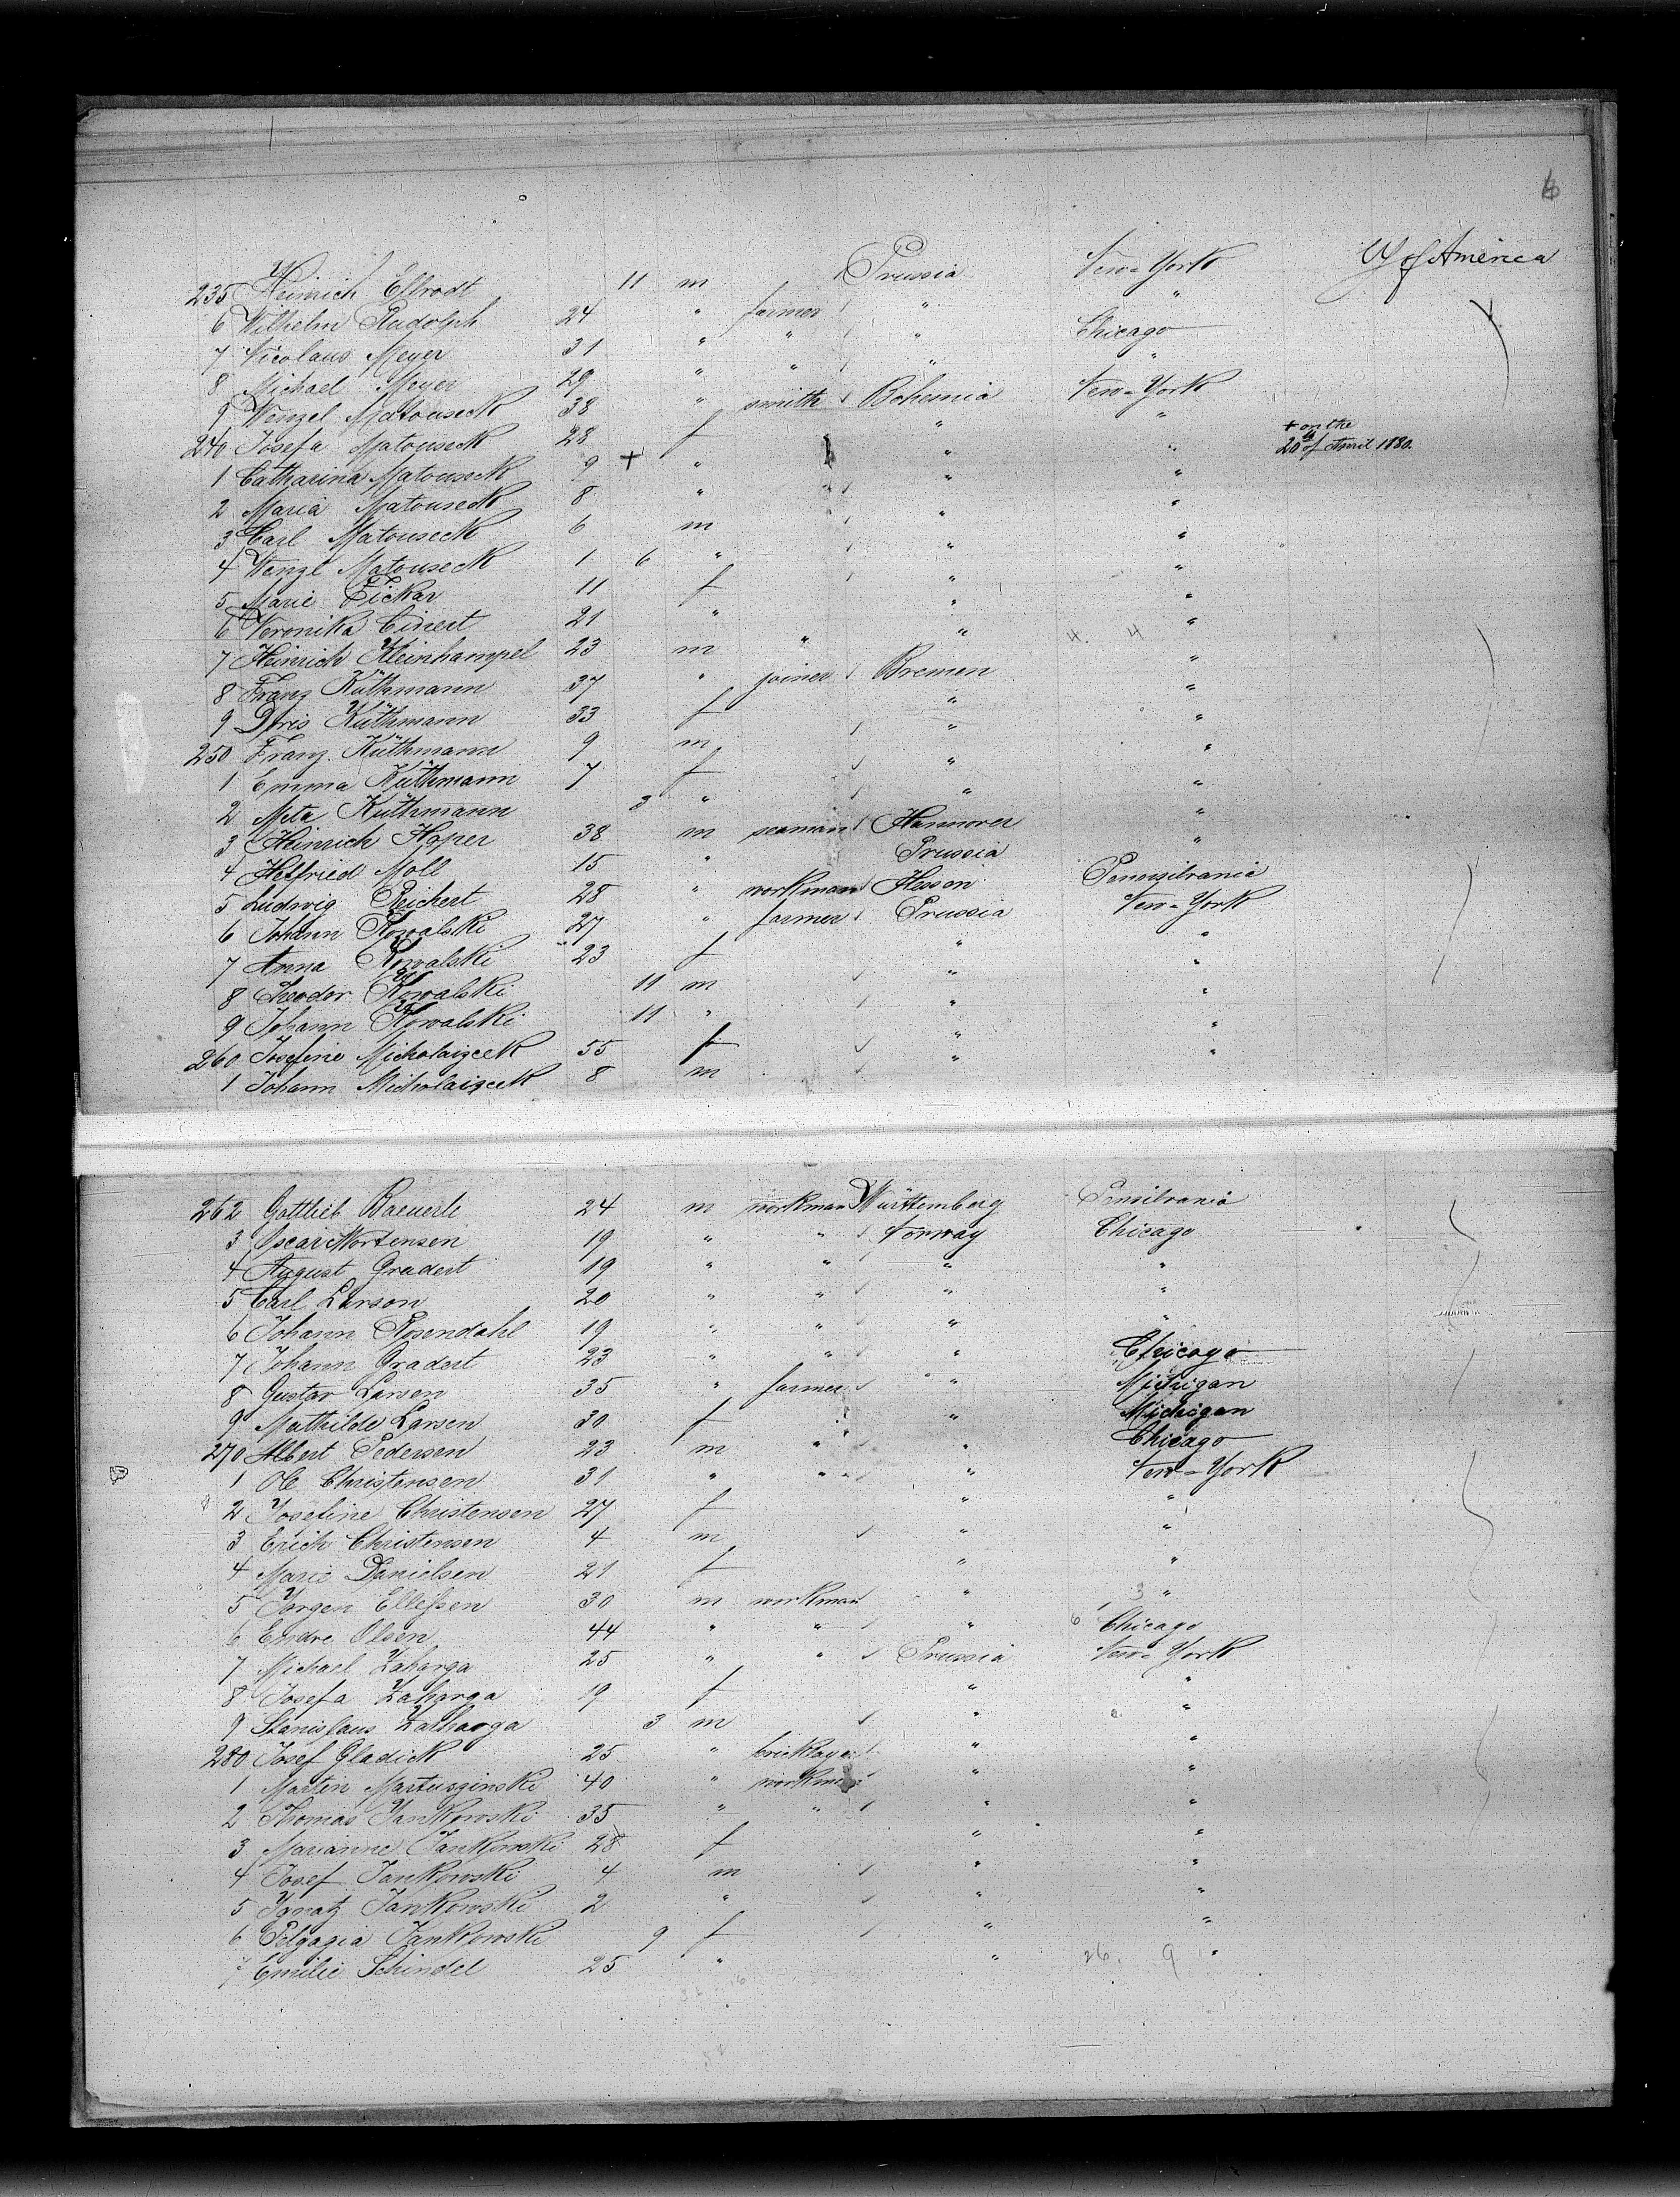 6
235 Heinrich Ellrodt 11 m Prussia New-York U of America
6 Wilhelm Rudolph 24 " farmer " "
7 Nicolaus Meyer 31 " " " Chicago
8 Michael Meyer 29 " " " "
9 Wenzel Matouseck 38 " smith Bohemia New-York
240 Josefa Matouseck 28 f " "
1 Catharina Matouseck 9 + " " " + on the 20th of April 1880.
2 Maria Matouseck 8 " " "
3 Carl Matouseck 6 m " "
4 Wenzl Matouseck 1 6 " " "
5 Marie Fickar 11 f " "
6 Veronika Einert 21 " " "
7 Heinrich Kleinhampel 23 m " " "
8 Franz Küthmann 37 " joiner Bremen "
9 Doris Küthmann 33 f " "
250 Franz Küthmann 9 m " "
1 Emma Küthmann 7 f " "
2 Meta Küthmann 3 " " "
3 Heinrich Hoper 38 m seaman Hannover "
4 Helfried Moll 15 " Prussia "
5 Ludwig Reichert 28 " workman Hesson Pennsilvania
6 Johann Kowalski 27 " farmer Prussia New-York
7 Anna Kowalski 23 f " "
8 Theodor Kowalski 11 m " "
9 Johann Kowalski 11 " " "
260 Josefine Micholaizceck 55 f " "
1 Johann Micholaizceck 8 m " "
262 Gottlieb Baeuerle 24 m workman Württemberg Pensilvania
3 Oscar Mortensen 19 " " Norway Chicago
4 August Gradert 19 " " " "
5 Carl Larson 20 " " " "
6 Johann Rosendahl 19 " " " "
7 Johann Gradert 23 " " " Chicago
8 Gustav Larsen 35 " farmer " Michigan
9 Mathilde Larsen 30 f " Michigan
270 Albert Pedersen 23 m " " Chicago
1 Ole Christensen 31 " " " New-York
2 Josefine Christensen 27 f " "
3 Erich Christensen 4 m " "
4 Marie Danielsen 21 f " "
5 Jorgen Ellefsen 30 m workman " "
6 Endre Olsen 44 " " " Chicago
7 Michael Zaharga 25 " " Prussia New-York
8 Josefa Zaharga 19 f " "
9 Stanislaus Zalharga 3 m " "
280 Josef Gladick 25 " bricklayer " "
1 Martin Martuszinski 40 " workman " "
2 Thomas Jankowski 35 " " " "
3 Marianne Jankowski 28 f " "
4 Josef Jankowski 4 m " "
5 Ignatz Jankowski 2 " " "
6 Pelgagia Jankowski 9 f " "
7 Emilie Schindel 25 " " 26. 9 "